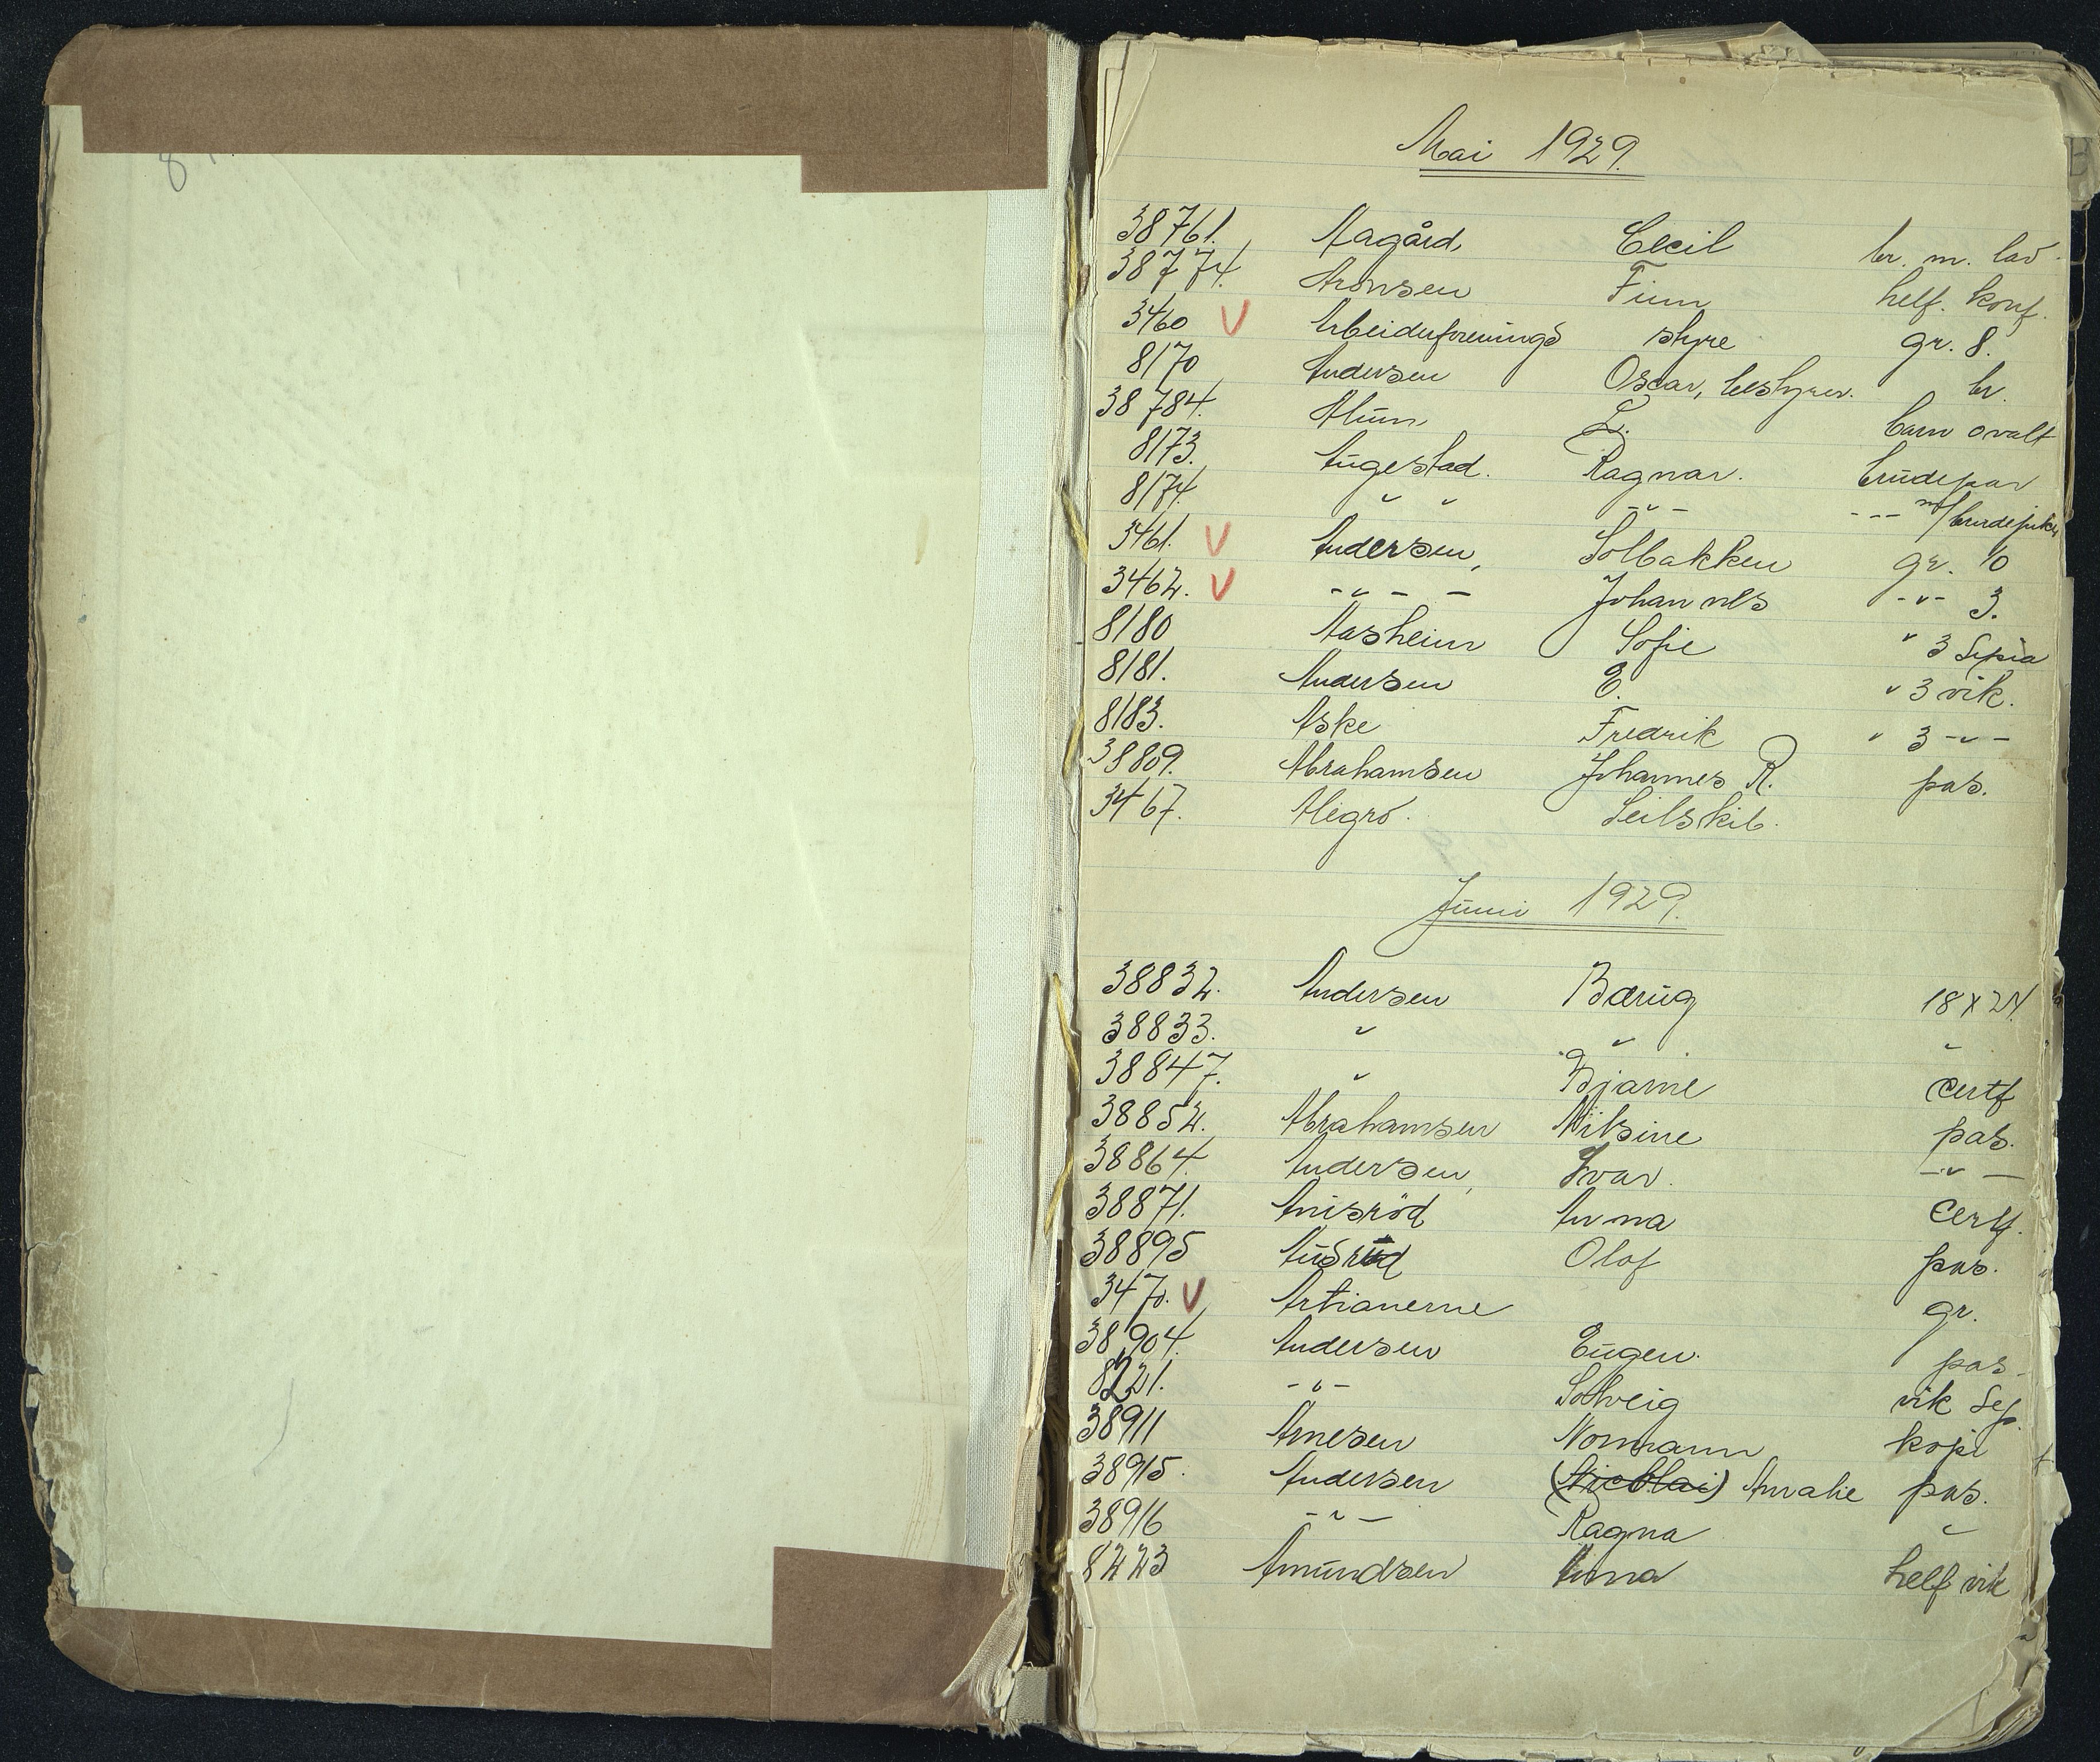 Mai 1929.
38761. Aagård, Cecil br. m. lav.
38774. Aronsen Finn helf. konf.
3460 V Arbeiderforenings styre gr. 8.
8170 Andersen Oscar, bestyrer. br.
38784. Alum L. barn ovalt
8173. Augestad. Ragnar. brudepar
8174 " " - " - --- m/ brudepiker
3461. V Andersen, Solbakken gr. 10
3462. V - " - - Johannes - " - 3.
8180 Aasheim Sofie " 3 Sepia
8181. Andersen E. " 3 vik.
8183. Aske Fredrik " 3 - " -
38809. Abrahamsen Johannes R. pas.
3467. Alegro. Seilskib.
Juni 1929.
38832. Andersen Bærug 18 x 24.
38833. " " "
38847. " Bjarne Certf
38852. Abrahamsen Nilsine pas.
38864. Andersen, Ivar. - " -
38871. Anisröd Anna Certf.
38895 Ausrud Olaf pas.
3470. V Artianerne gr.
38904. Andersen Eugen. pas.
8221. - " - Solveig vik Sep.
38911 Arnesen Normann kopi
38915. Andersen (Nicolai) Amalie pas.
38916 - " - Ragna "
8223 Amundsen Anna helf vik